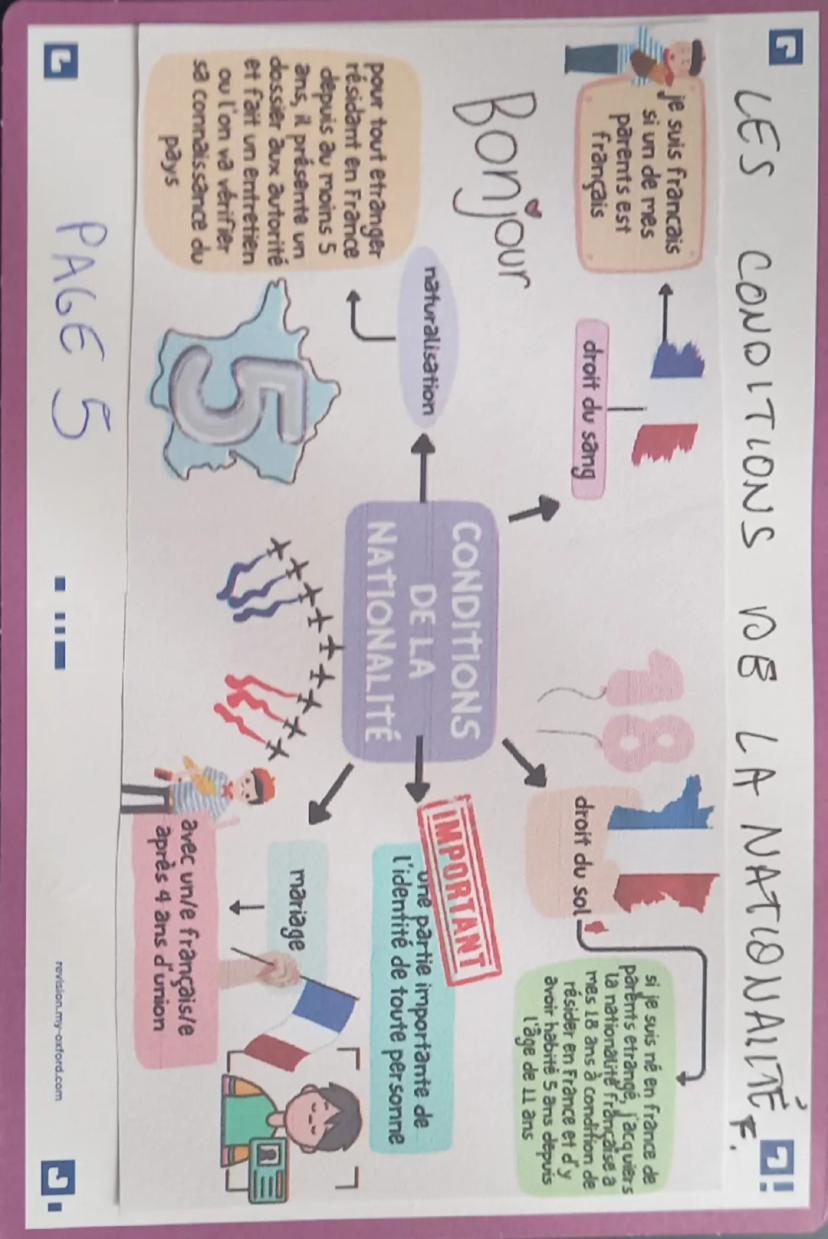 LES CONDITIONS DE LA NATIONALITÉ F.
je suis français
si un de mes
parents est
français
droit du sang
Bonjour
18
droit du sol
si je suis né en france de
parents etrangé, j'acquiers
la nationalité française a
mes 18 ans à condition de
résider en France et d'y
avoir habité 5 ans depuis
l'âge de 11 ans
naturalisation
CONDITIONS
DE LA
NATIONALITÉ
IMPORTANT
une partie importante de
l'identité de toute personne
pour tout etranger
résidant en France
depuis au moins 5
ans, il présente un
dossier aux autorité
et fait un entretien
ou l'on va vérifier
sa connaissance du
pays
5
mariage
avec un/e français/e
après 4 ans d'union
PAGE 5
revision.my-oxford.com